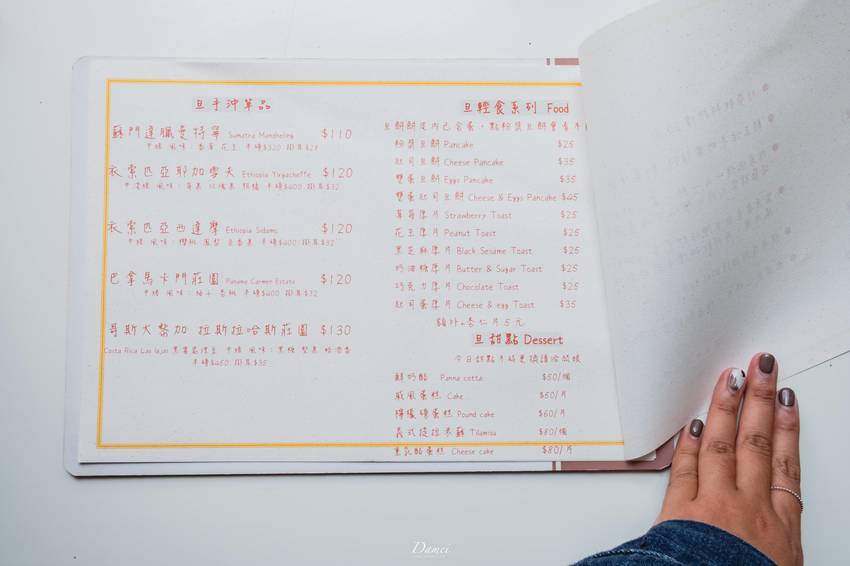 旦手沖單品
蘇門達臘曼特寧 Sumatra Mandheling $110
中焙 風味：香草 花豆 半磅$320 掛耳$28
衣索匹亞耶加雪夫 Ethiopia Yirgacheffe $120
半磅$400 掛耳$32
衣索匹亞西達摩 Ethiopia Sidamo $120
半磅$400 掛耳$32
巴拿馬卡門莊園 Panama Carmen Estate $120
中焙 風味：柚子 半磅$400 掛耳$32
哥斯大黎加 拉斯拉哈斯莊園 $130
Costa Rica Las lajas 黑蜜處理豆 中焙 風味：黑糖 堅果
半磅$450 掛耳$35
旦輕食系列 Food
旦餅餅皮內已含蛋，點粉漿旦餅會
粉漿旦餅 Pancake $25
起司旦餅 Cheese Pancake $35
雙蛋旦餅 Eggs Pancake $35
雙蛋起司旦餅 Cheese & Eggs Pancake $45
草莓厚片 Strawberry Toast $25
花生厚片 Peanut Toast $25
黑芝麻厚片 Black Sesame Toast $25
奶油糖厚片 Butter & Sugar Toast $25
巧克力厚片 Chocolate Toast $25
起司蛋厚片 Cheese & egg Toast $35
額外+杏仁片5元
旦甜點 Dessert
今日甜點不時更換請洽閱櫃
鮮奶酪 Panna cotta $50/個
戚風蛋糕 Cake $50/片
檸檬磅蛋糕 Pound cake $60/片
義式提拉米蘇 Tilamisu $80/個
重乳酪蛋糕 Cheese cake $80/片
Damei